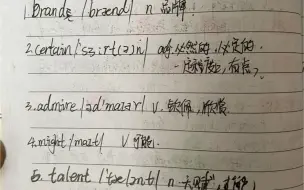 1.brands /brænd/ n 品牌.
2.certain /'sɜ:rt(ə)n/ adj 必然的,必定的.
一定程度, 有点?
3.admire /əd'maɪər/ v. 钦佩,欣赏
4.might /maɪt/ v 可能.
5. talent /'tælənt/ n 天赋,